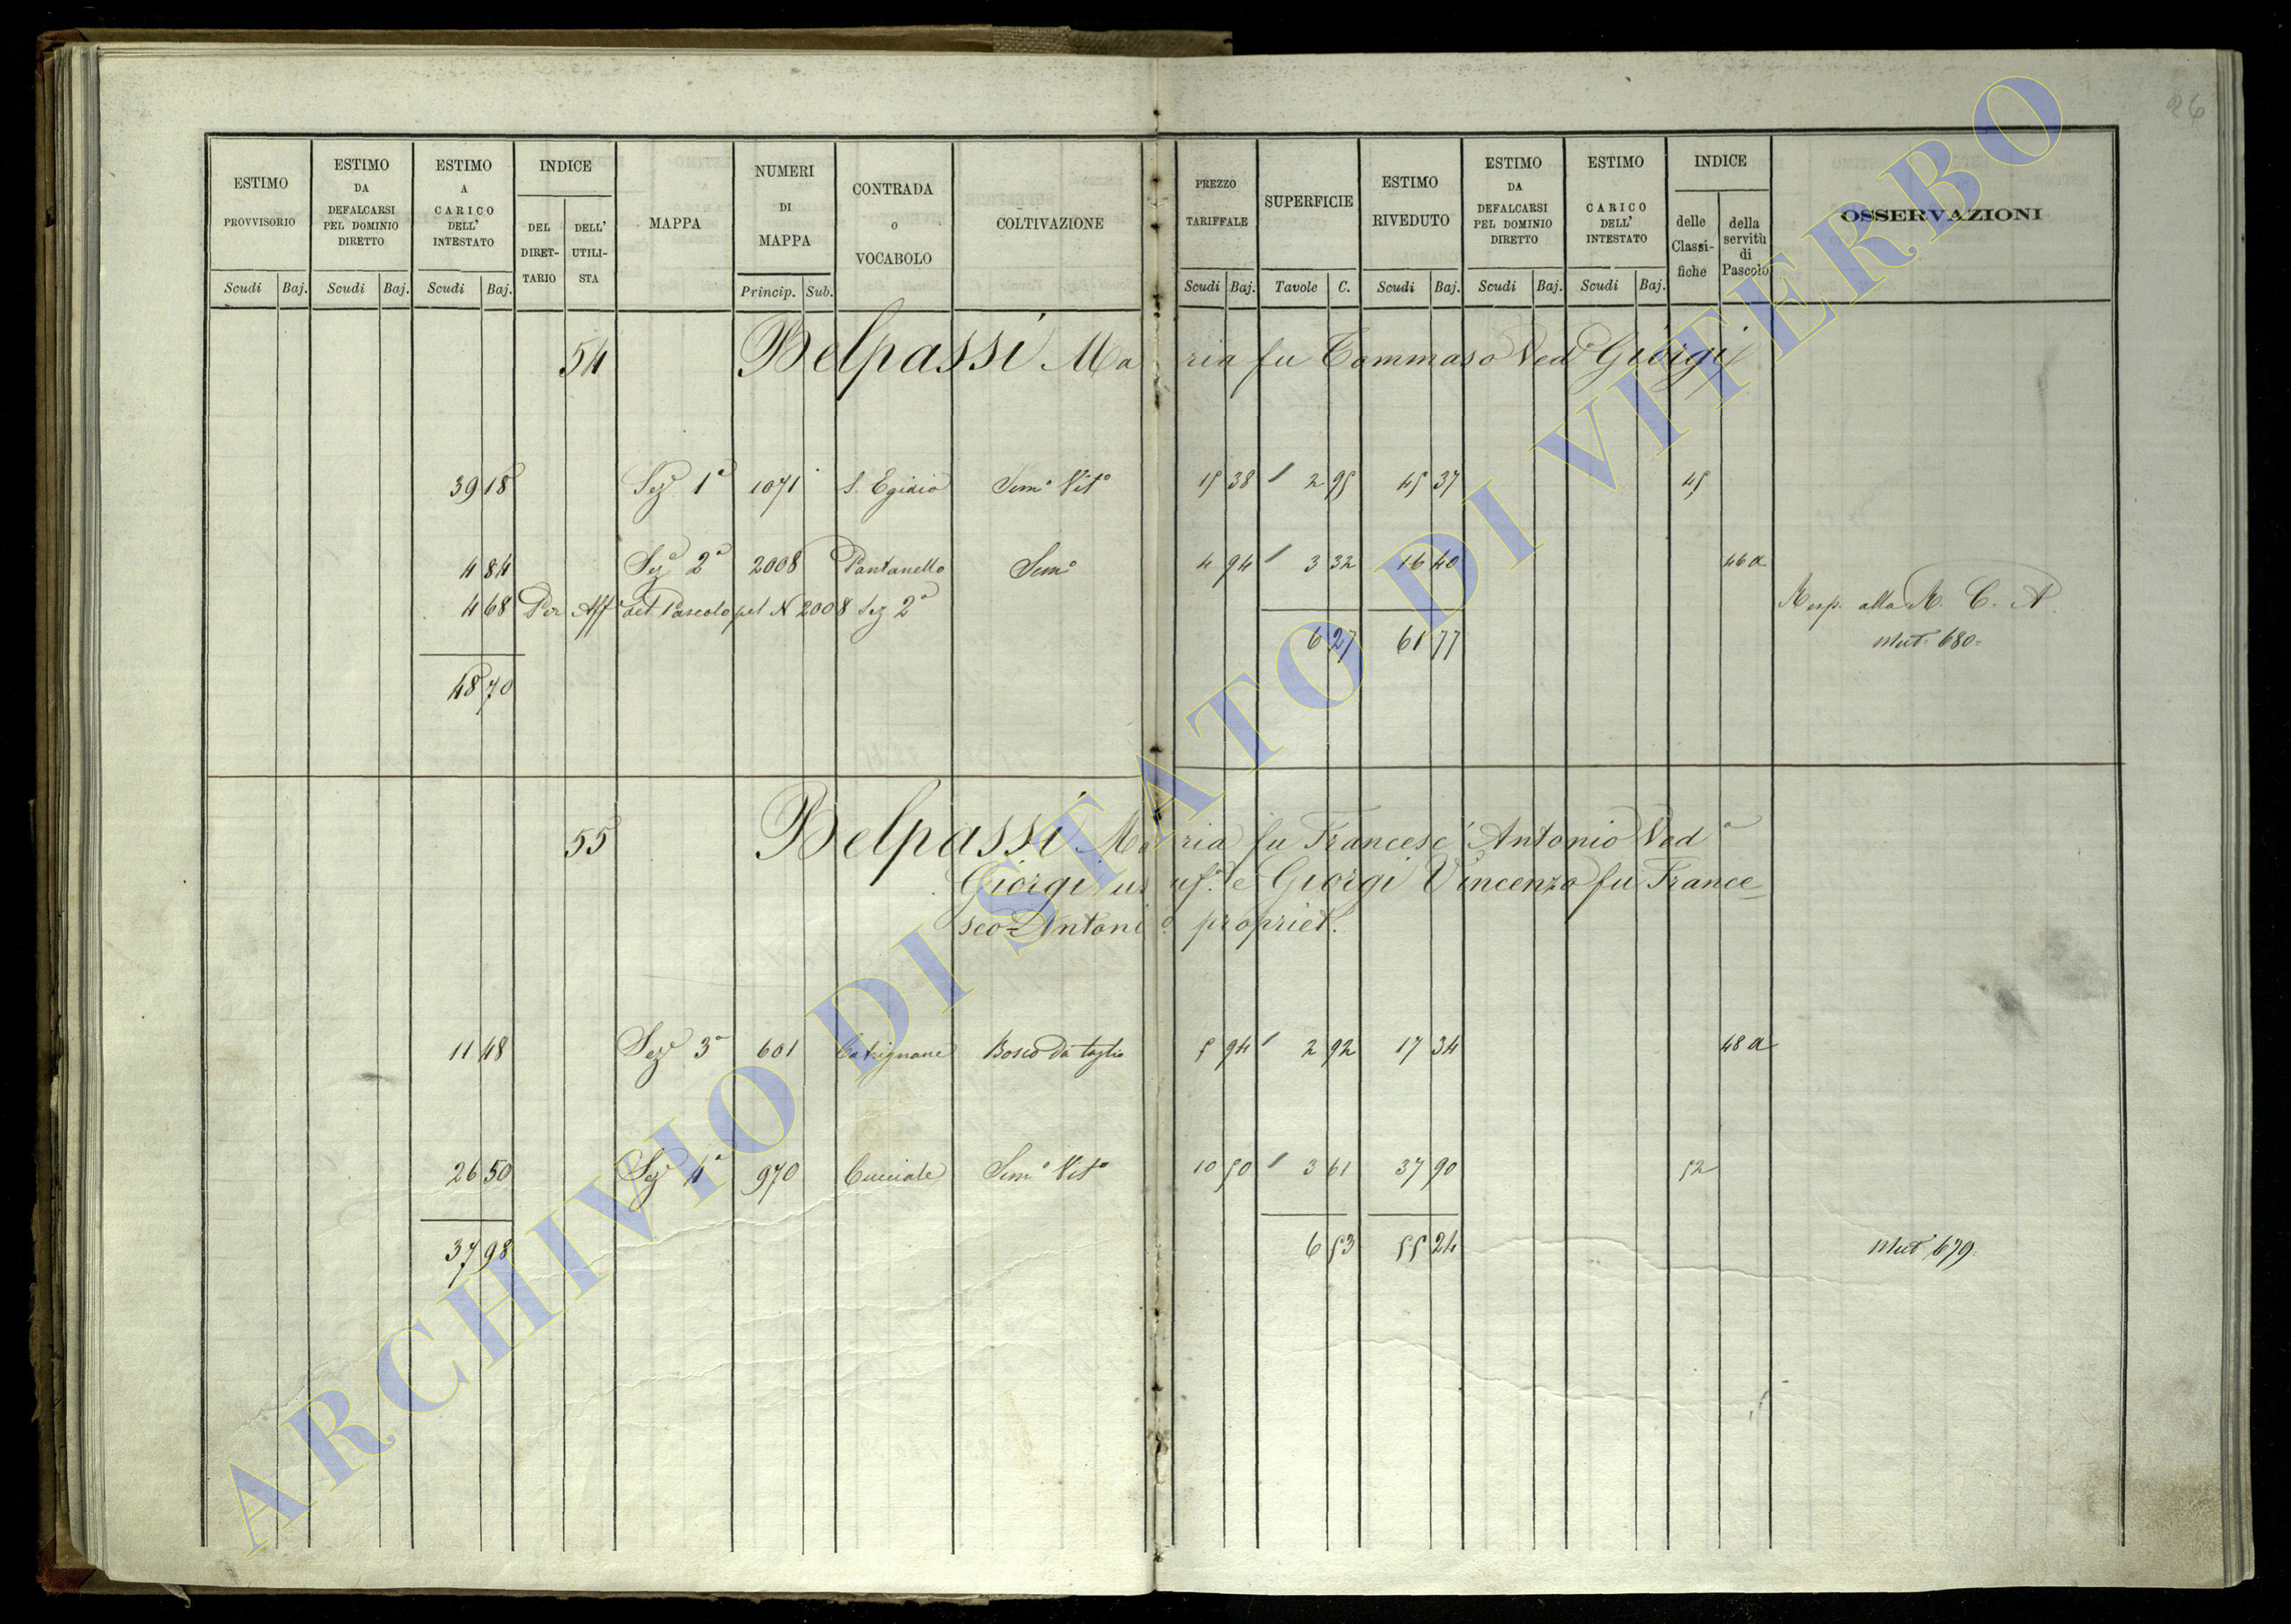 26
ESTIMO PROVVISORIO | ESTIMO DA DEFALCARSI PEL DOMINIO DIRETTO | ESTIMO A CARICO DELL' INTESTATO | INDICE DEL DIRET-TARIO | DELL' UTILI-STA | MAPPA | NUMERI DI MAPPA | CONTRADA o VOCABOLO | COLTIVAZIONE | PREZZO TARIFFALE | SUPERFICIE | ESTIMO RIVEDUTO | ESTIMO DA DEFALCARSI PEL DOMINIO DIRETTO | ESTIMO A CARICO DELL' INTESTATO | INDICE delle Classi-fiche | della servitù di Pascolo | OSSERVAZIONI
Scudi Baj. | Scudi Baj. | Scudi Baj. | Princip. Sub. | Scudi Baj. | Tavole C. | Scudi Baj. | Scudi Baj. | Scudi Baj.
54 Belpassi Maria fu Tommaso Ved.a Giorgi
39 18 Sez.e 1a 1071 S. Egidio Sem.o Vit.o 15 38 2 95 45 37 45
4 84 Sez.e 2a 2008 Pantanello Sem.o 4 94 3 32 16 40 46 a
4 68 Per Aff. del Pascolo pel N 2008 Sez 2a Resp. alla R. C. A.
6 27 61 77 Mut. 680
48 70
55 Belpassi Maria fu Francesc' Antonio Ved.a
Giorgi usuf.a e Giorgi Vincenzo fu France
sco Antonio propriet.
11 48 Sez.e 3a 601 Catrignano Bosco da taglio 5 94 2 92 17 34 48 a
26 50 Sez 4a 970 Cucciale Sem.o Vit.o 10 50 3 61 37 90 52
37 98 6 53 55 24 Mut 679
ARCHIVIO DI STATO DI VITERBO